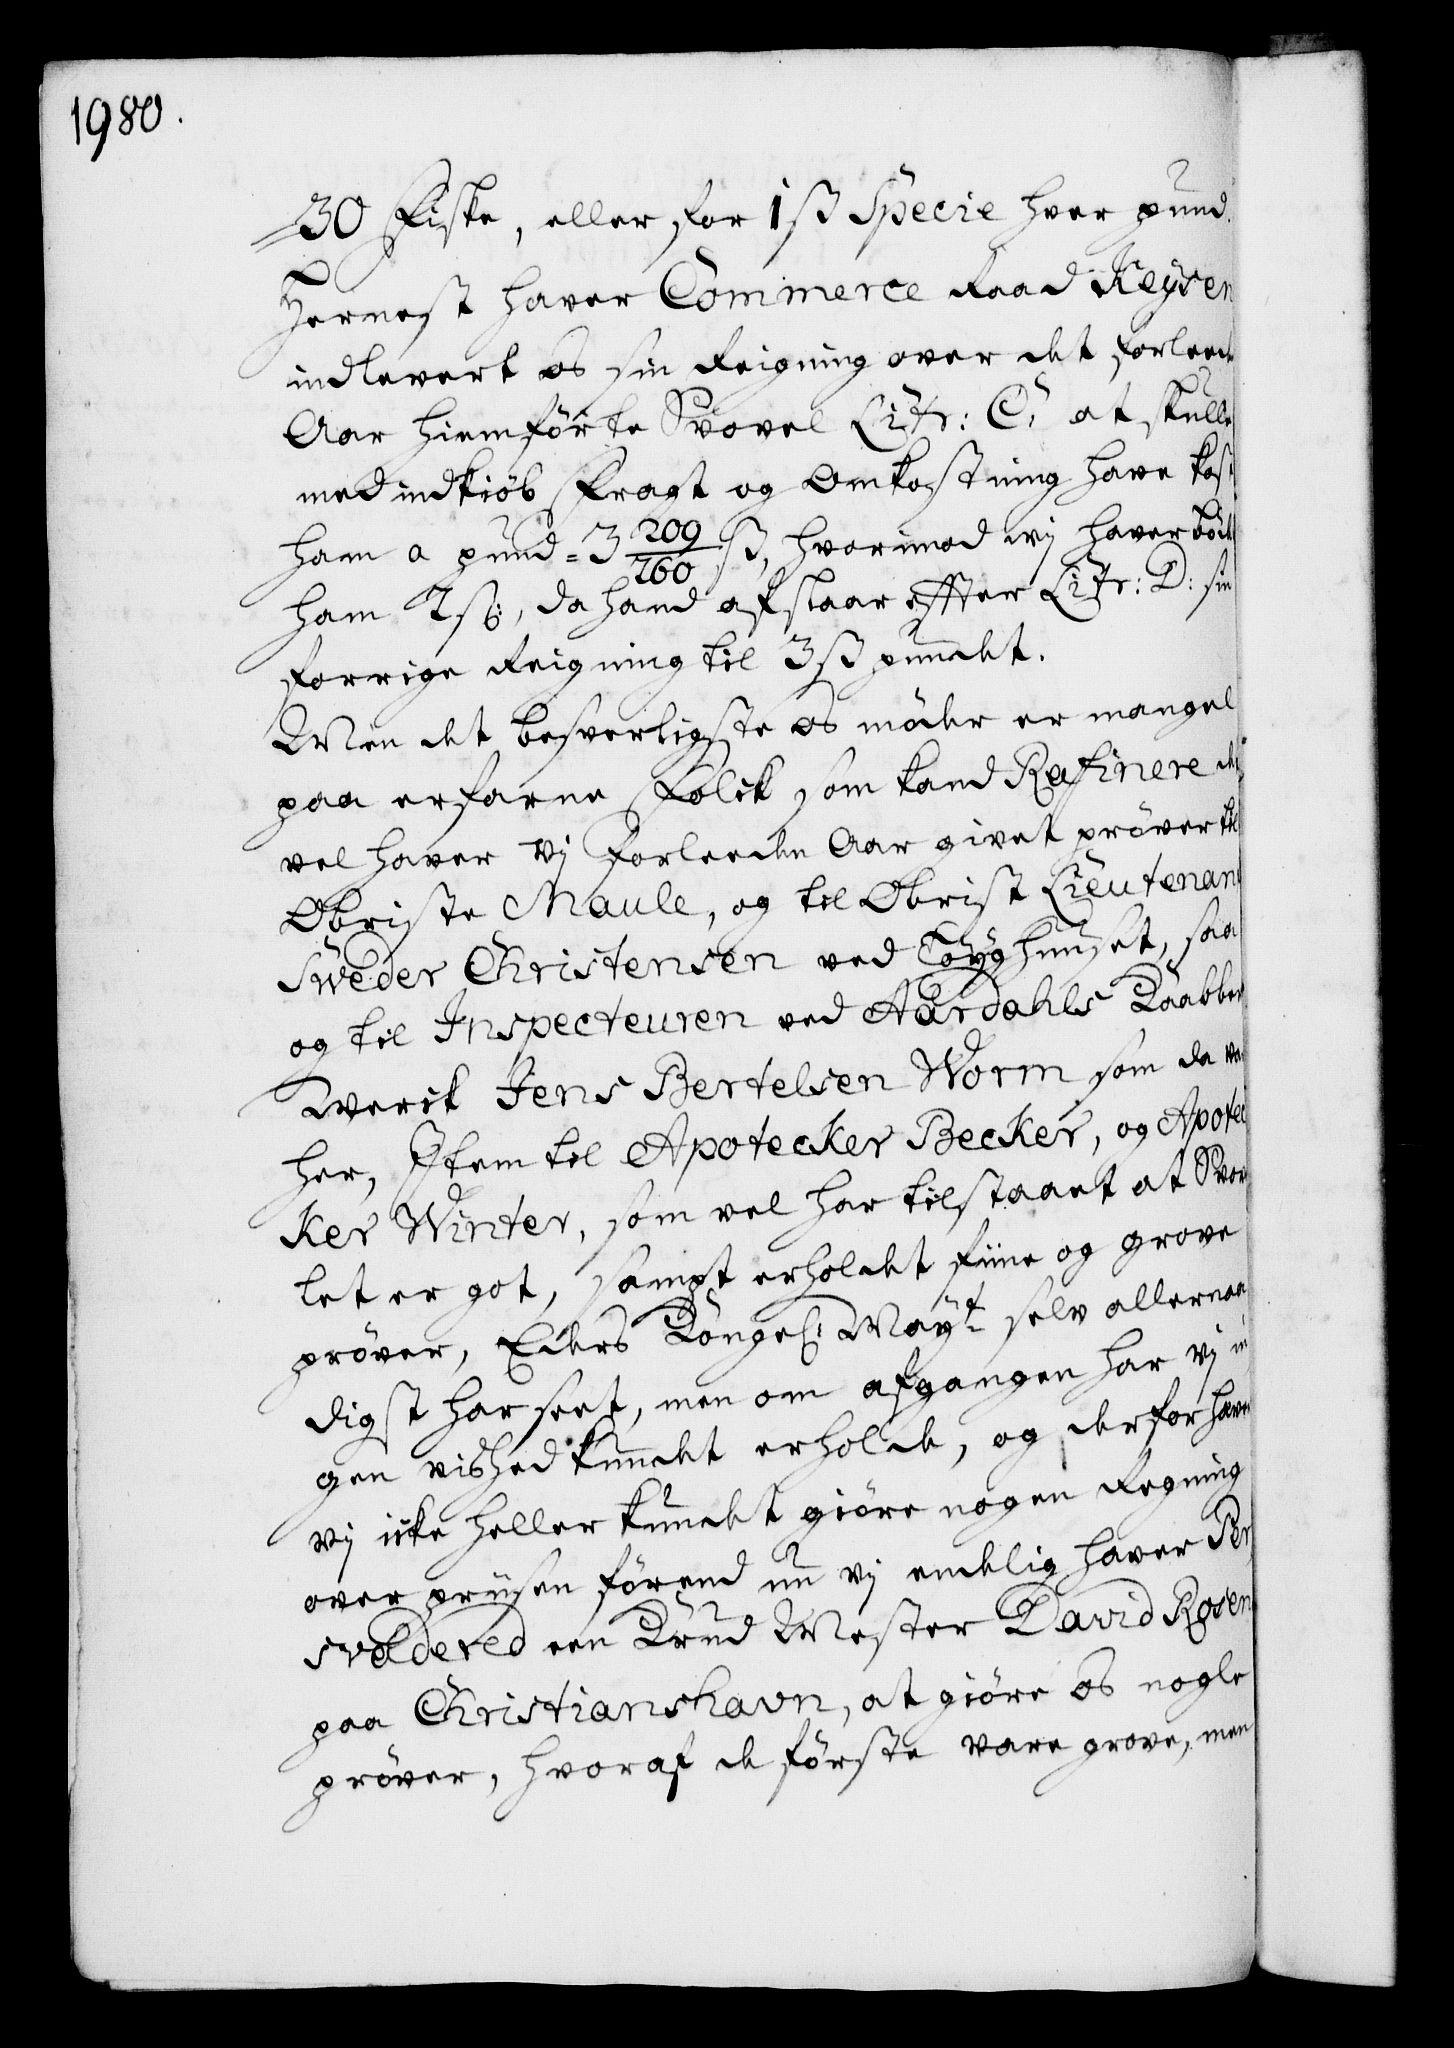 1980.
30 Fiske, eller for 1 ß Specie hver pund.
Hernest haver Commerce Raad Keysen
indlevert os sin Reigning over det forleeden
Aar hiemførte Svovel Litr: C, at skulle
med indkiøb Fragt og Omkostning have kost
ham a pund = 3 209/760 ß, hvorimod wj haver bödet
ham 2 ß:, da hand afslaar effter Litr: D: sin
forrige Reigning til 3 ß pundet.
Men det besverligste os möder er mangel
paa erfarne Folck som kand Rafinere det
vel haver Vj forleeden Aar givet pröver til
Obriste Maule, og til Obrist Lieutenant
Sweder Christensen ved Töyghuuset, saa
og til Inspecteuren ved Aardahls Kaabber
werck Jens Bertelsen Worm som da var
her, Item til Apotecker Becker, og Apotec
ker Winter, som vel har tilstaaet at Svov
let er got, sampt erholdet fiine og grove
pröver, Eders Kongel: Mayt selv allernaa
digst har seet, men om afgangen har Vj in
gen vished kundet erholde, og derfor haver
Vj icke heller kundet giöre nogen Regning
over priisen førend nu Vj endelig haver Per
svadered een Krud Mester David Rosen
paa Christianshavn, at giöre os nogle
pröver, hvoraf de förste vare grove, men